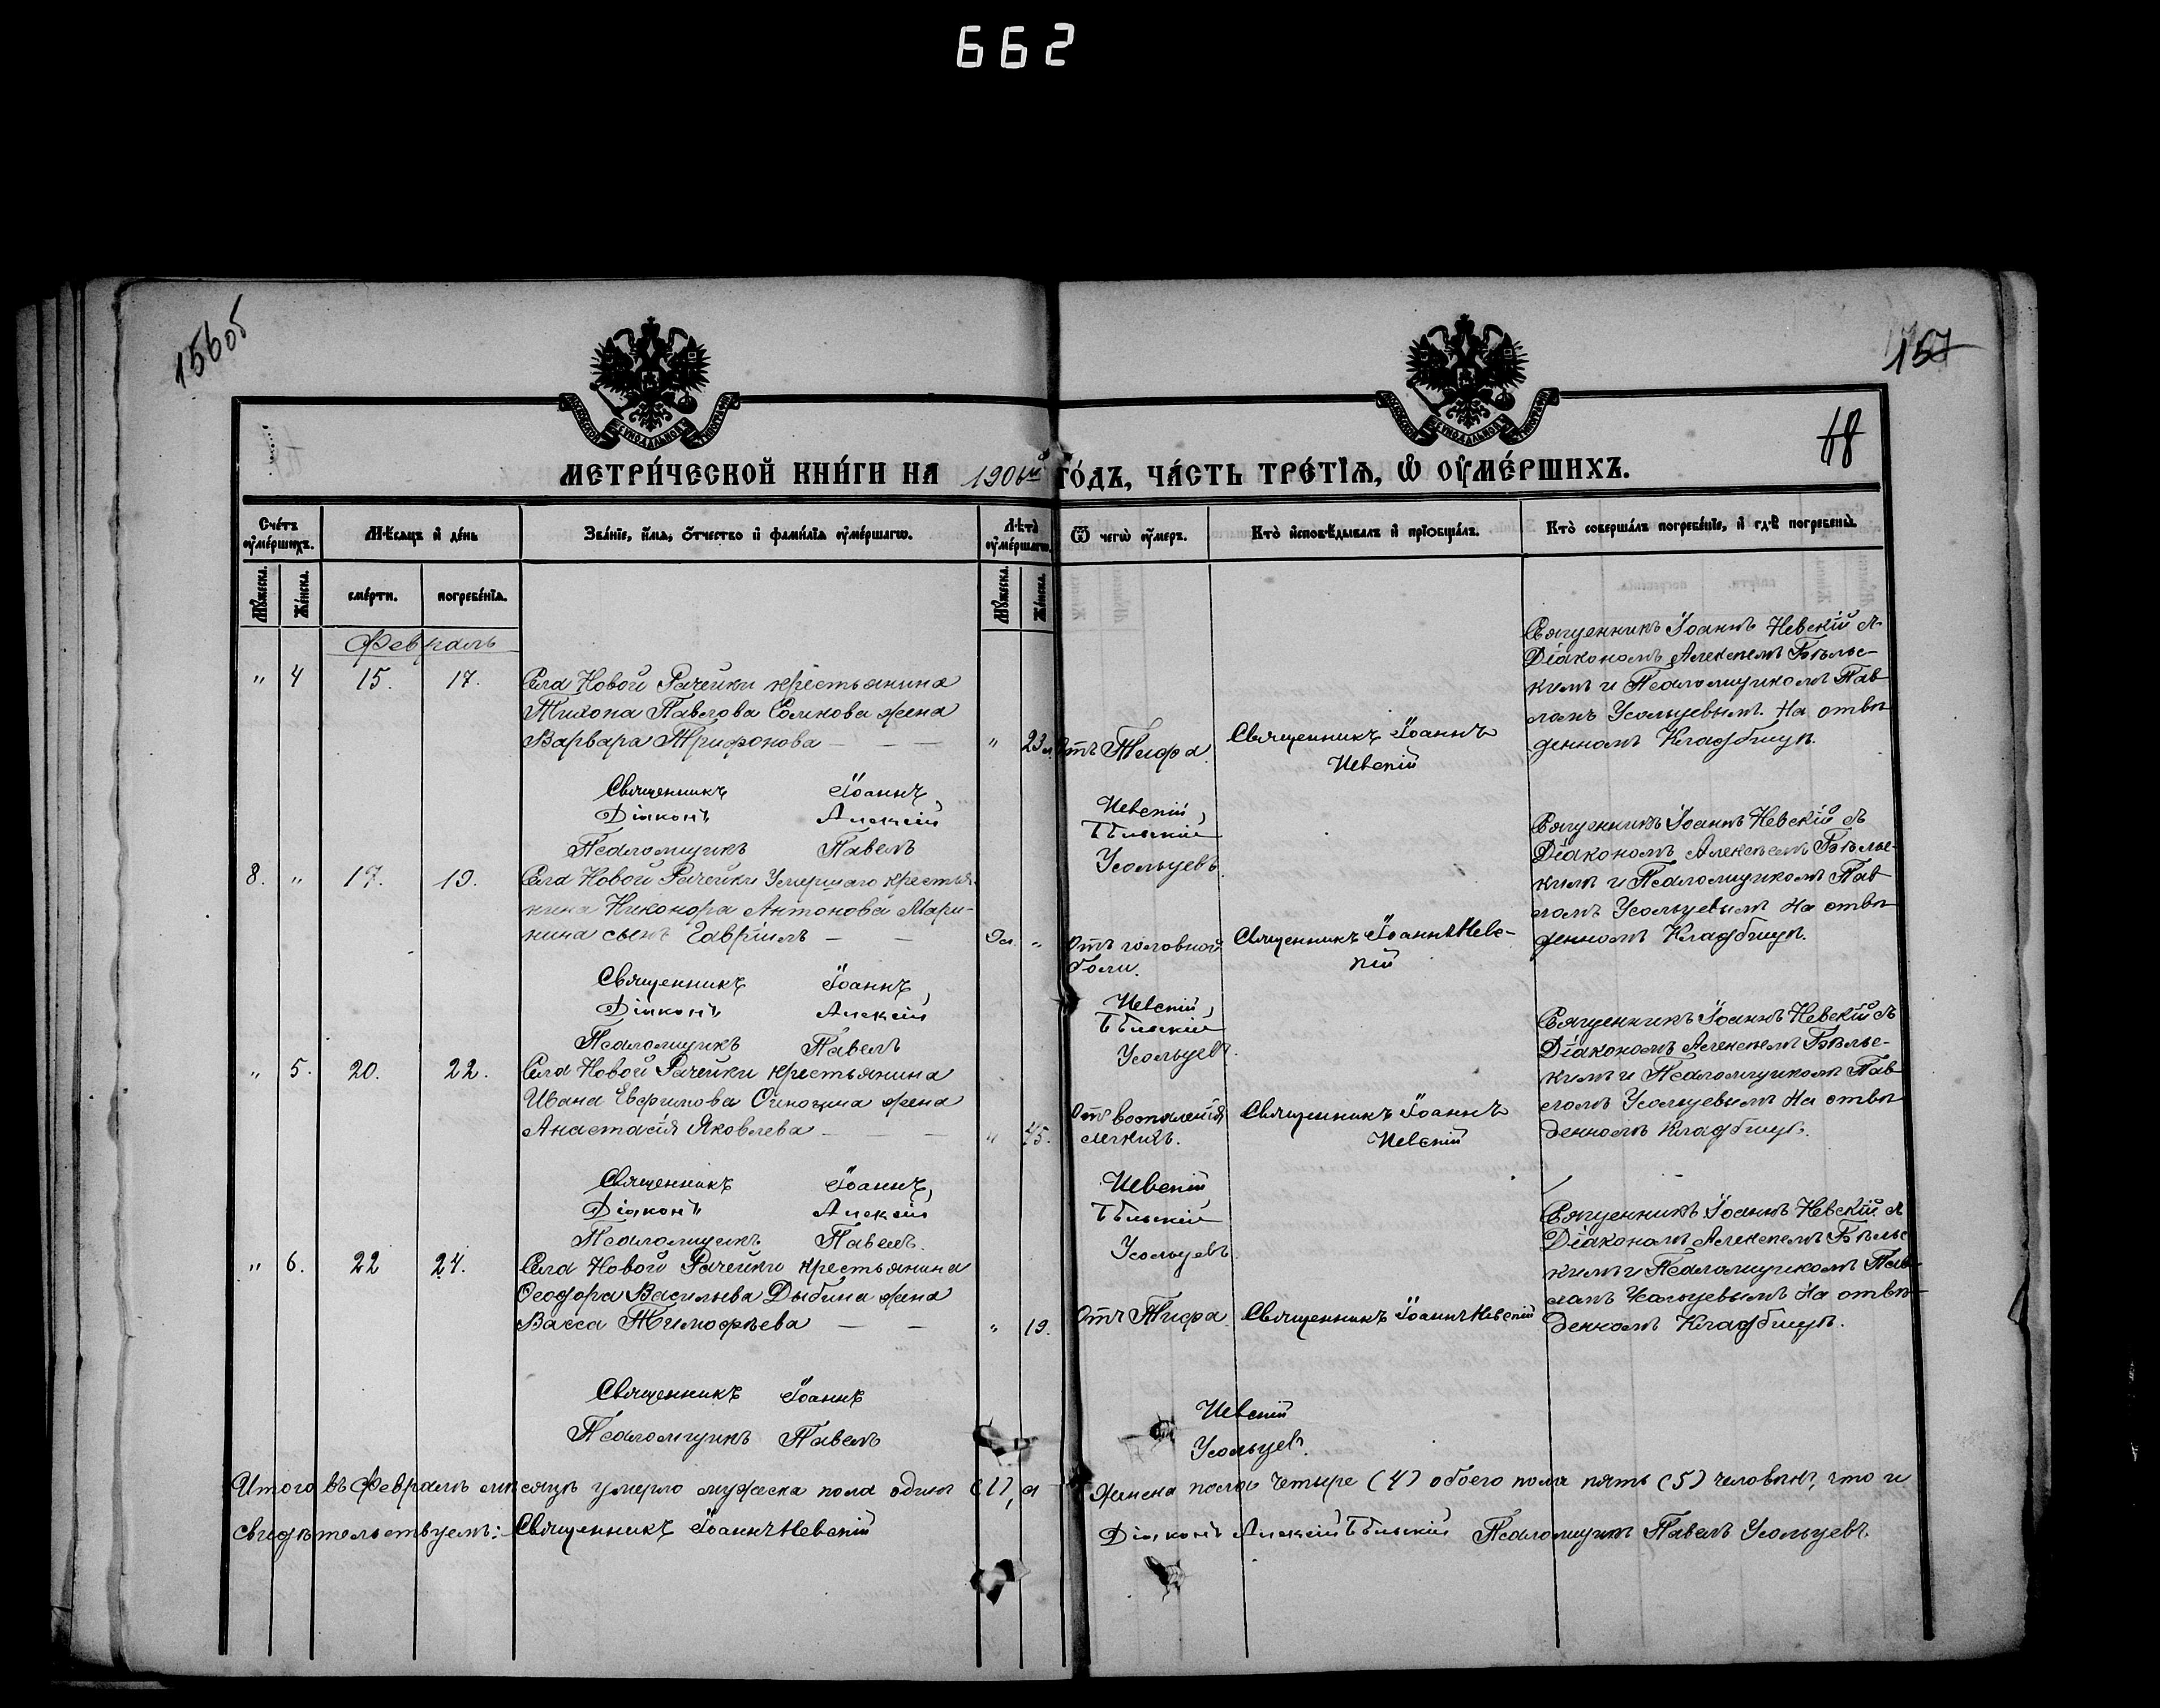 662
156об
157
18
МЕТРИ́ЧЕСКОЙ КНИ́ГИ НА 1906й ГО́ДЪ, ЧА́СТЬ ТРЕ́ТІѦ, Ѡ ОУМЕ́РШИХЪ.
Сче́тъ оуме́ршихъ.
Мѣсѧцъ и день
Зва́нїе, и́мѧ, о́тчество и фами́лїѧ оуме́ршагѡ.
Лѣта̀ оуме́ршагѡ.
Ѿ чегѡ̀ оу́меръ.
Кто̀ исповѣ́дывалъ и прїобща́лъ.
Кто̀ соверша́лъ погребе́нїе, и гдѣ̀ погребены̀.
Мꙋ́жеска.
Же́нска.
сме́рти.
погребе́нїѧ.
Мꙋ́жеска.
Же́нска.
Февраль
" 4 15. 17.
Села Новой Рачейки крестьянина
Тихона Павлова Сомкова жена
Варвара Трифонова — — —
" 23 л
Отъ Тифа.
Священникъ Іоаннъ
Невскій
Священникъ Іоаннъ Невскій съ
Діакономъ Алексѣемъ Бѣльс-
кимъ и Псаломщикомъ Пав
ломъ Усольцевымъ. На отвѣ
денномъ Кладбищѣ.
Священникъ Іоаннъ Невскій,
Діаконъ Алексій Бѣльскій
Псаломщикъ Павелъ Усольцевъ.
8. " 17. 19.
Села Новой Рачейки Умершаго крестья-
нина Никонора Антонова Мари-
нина сынъ Гавріилъ — —
9 л. "
Отъ головной
боли.
Священникъ Іоаннъ Невс-
кій
Священникъ Іоаннъ Невскій съ
Діакономъ Алексѣемъ Бѣльс-
кимъ и Псаломщикомъ Пав
ломъ Усольцевымъ На отвѣ
денномъ Кладбищѣ.
Священникъ Іоаннъ, Невскій,
Діаконъ Алексій Бѣльскій
Псаломщикъ Павелъ Усольцевъ.
" 5. 20. 22.
Села Новой Рачейки крестьянина
Ивана Евфимова жена
Анастасія Яковлева — — —
" 45.
Отъ воспаленія
легкихъ.
Священникъ Іоаннъ
Невскій
Священникъ Іоаннъ Невскій съ
Діакономъ Алексѣемъ Бѣльс-
кимъ и Псаломщикомъ Пав
ломъ Усольцевымъ На отвѣ
денномъ Кладбищѣ.
Священникъ Іоаннъ, Невскій
Діаконъ Алексій Бѣльскій
Псаломщикъ Павелъ. Усольцевъ
" 6. 22 24.
Села Новой Рачейки крестьянина
Ѳеодора Васильева Дыбина жена
Васса Тимофѣева — —
" 19.
Отъ Тифа.
Священникъ Іоаннъ Невскій
Священникъ Іоаннъ Невскій съ
Діакономъ Алексѣемъ Бѣльс
кимъ и Псаломщикомъ Пав-
ломъ Усольцевымъ На отвѣ-
денномъ Кладбищѣ.
Священникъ Іоаннъ Невскій
Псаломщикъ Павелъ Усольцевъ.
Итого въ Февралѣ мѣсяцѣ умерло мужеска пола одинъ (1), а женска пола четыре (4) обоего пола пять (5) человѣкъ, что и
свидѣтельствуемъ: Священникъ Іоаннъ Невскій Діаконъ Алексій Бѣльскій Псаломщикъ Павелъ Усольцевъ.